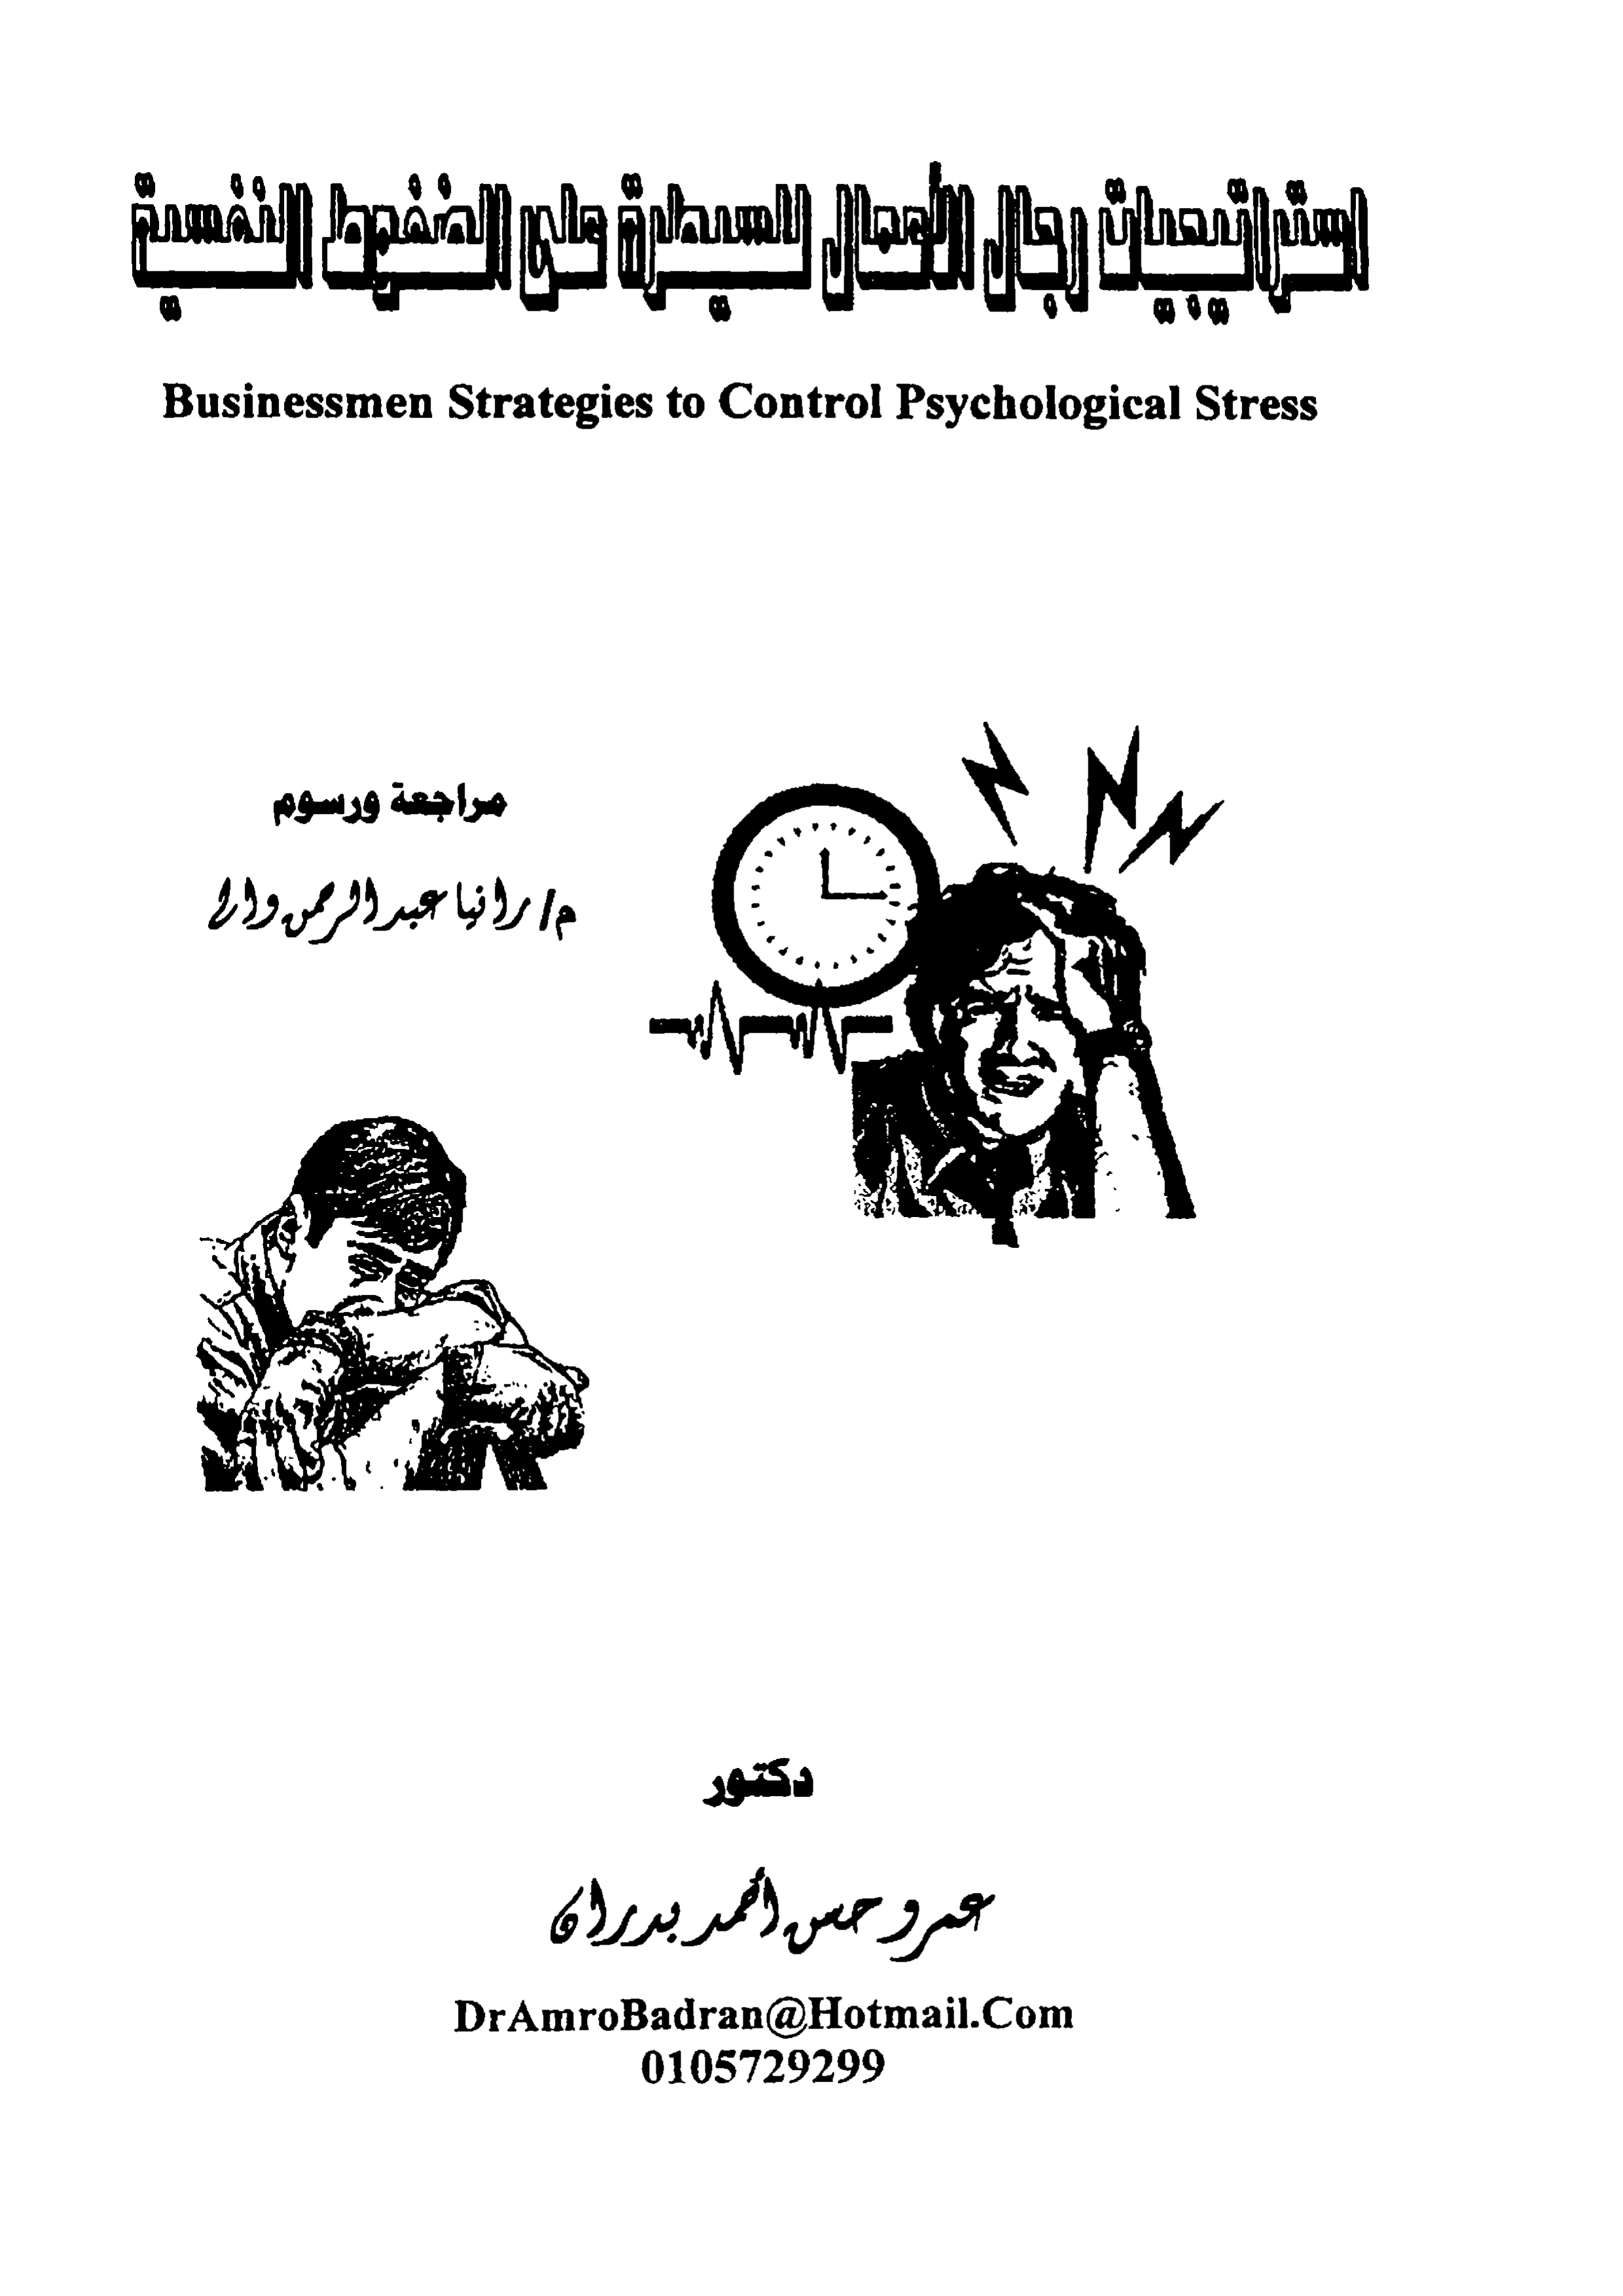 استراتيجيات رجال الأعمال للسيطرة على الضغوط النفسية
Businessmen Strategies to Control Psychological Stress
مراجعة ورسوم
م/ رانيا عبد الرحمن والى
دكتور
عمرو حسن أحمد بدران
DrAmroBadran@Hotmail.Com
0105729299